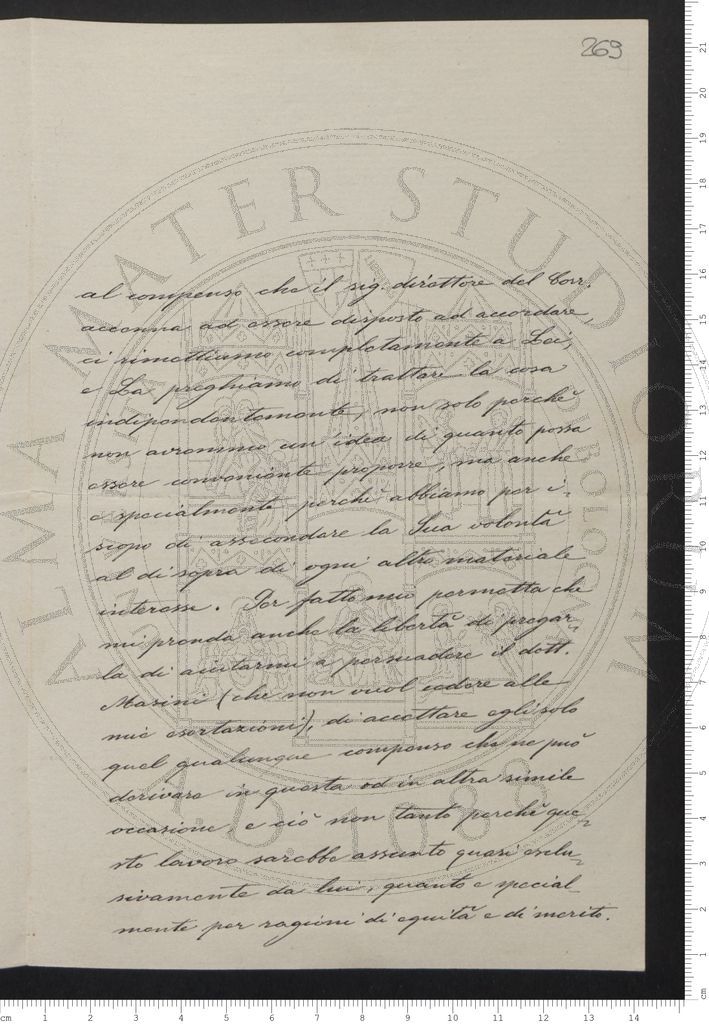 269
al compenso che il sig. direttore del Corr.
accenna ad essere disposto ad accordare,
ci rimettiamo completamente a Lei,
e La preghiamo di trattare la cosa
indipendentemente, non solo perchè
non avremmo un'idea di quanto possa
essere conveniente proporre, ma anche
e specialmente perchè abbiamo per i-
scopo di assecondare la Sua volontà
al di sopra di ogni altro materiale
interesse. Per fatto mio permetta che
mi prenda anche la libertà di pregar-
la di aiutarmi a persuadere il dott.
Masini (che non vuol cedere alle
mie esortazioni), di accettare egli solo
quel qualunque compenso che ne può
derivare in questa od in altra simile
occasione, e ciò non tanto perchè que-
sto lavoro sarebbe assunto quasi esclu-
sivamente da lui, quanto e special-
mente per ragioni di equità e di merito.
ALMA MATER STUDIORUM
A.D. 1088